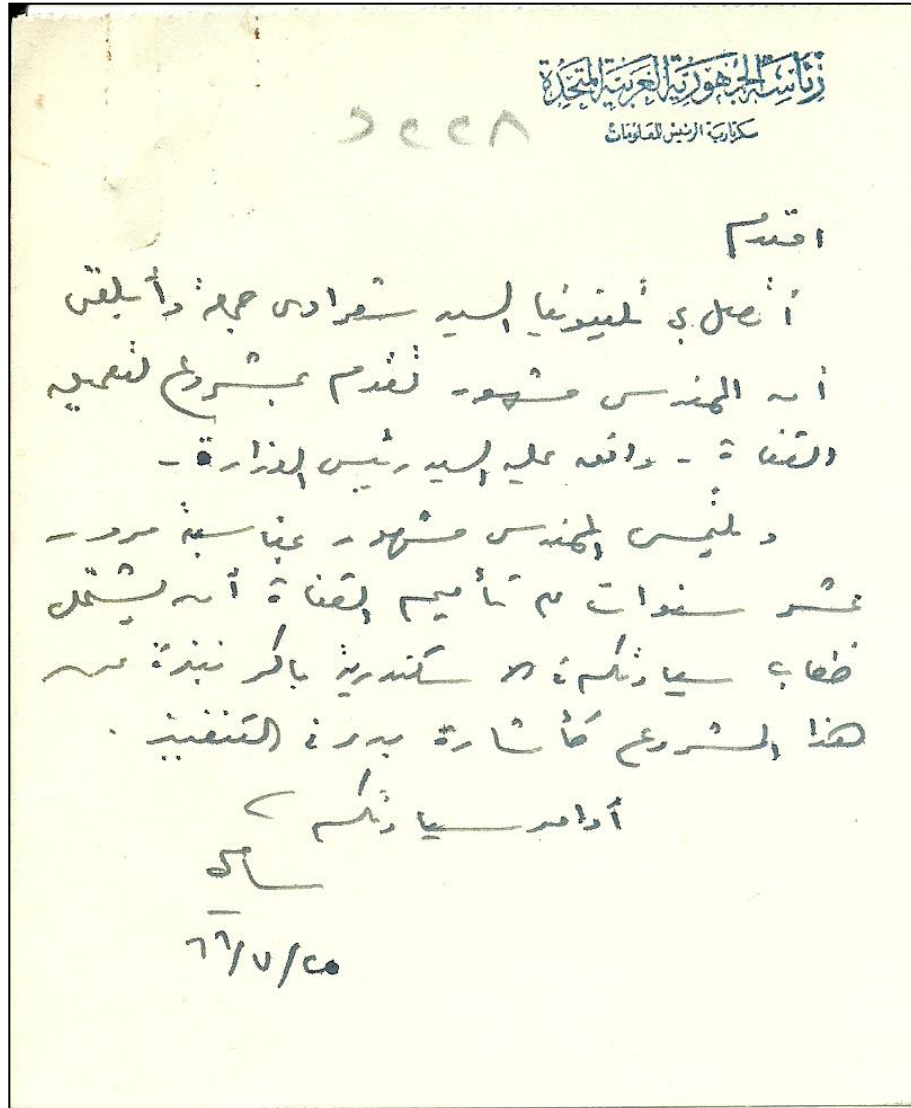 رئاسة الجمهورية العربية المتحدة
سكرتارية الرئيس للمعلومات
افندم
أتصل بي تليفونيا السيد شعراوى جمعة وأبلغنى
أن المهندس مشهور تقدم بمشروع لتعميق
القناة - وافق عليه السيد رئيس الوزارة -
ويلتمس المهندس مشهور بمناسبة مرور
عشر سنوات على تأميم القناة أن يشتمل
خطاب سيادتكم فى الاسكندرية باكر نبذة عن
هذا المشروع كأشارة ببدء فى التنفيذ .
أوامر سيادتكم
سامى
٦٦/٧/٢٥